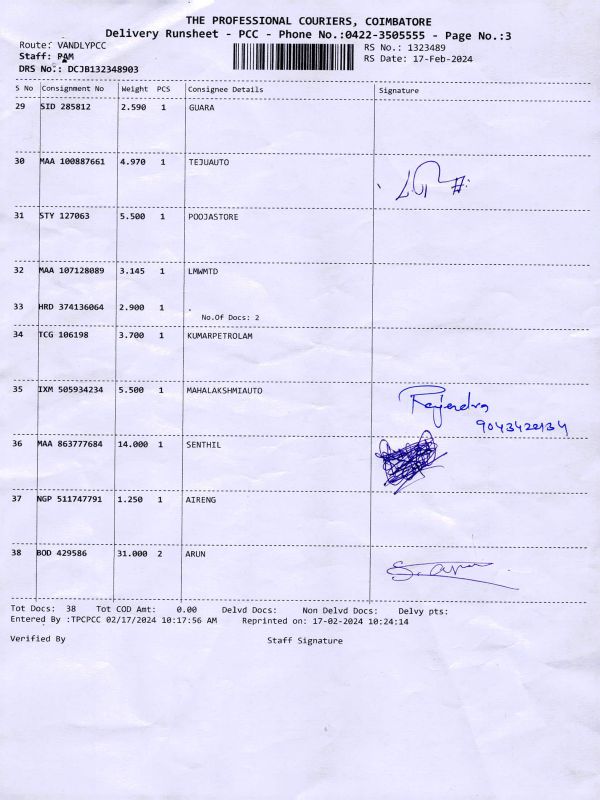 THE PROFESSIONAL COURIERS, COIMBATORE
Delivery Runsheet - PCC - Phone No.:0422-3505555 - Page No.:3
Route: VANDLYPCC RS No.: 1323489
Staff: PAM RS Date: 17-Feb-2024
DRS No.: DCJB132348903
S No Consignment No Weight PCS Consignee Details Signature
29 SID 285812 2.590 1 GUARA
30 MAA 100887661 4.970 1 TEJUAUTO
31 STY 127063 5.500 1 POOJASTORE
32 MAA 107128089 3.145 1 LMWMTD
33 HRD 374136064 2.900 1 .
No.Of Docs: 2
34 TCG 106198 3.700 1 KUMARPETROLAM
35 IXM 505934234 5.500 1 MAHALAKSHMIAUTO Rajendra
9043422134
36 MAA 863777684 14.000 1 SENTHIL
37 NGP 511747791 1.250 1 AIRENG
38 BOD 429586 31.000 2 ARUN
Tot Docs: 38 Tot COD Amt: 0.00 Delvd Docs: Non Delvd Docs: Delvy pts:
Entered By :TPCPCC 02/17/2024 10:17:56 AM Reprinted on: 17-02-2024 10:24:14
Verified By Staff Signature